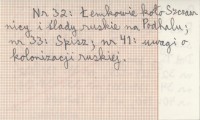 Nr 32: Łemkowie koło Szczaw
nicy i ślady ruskie na Podhalu;
nr 33: Spisz; nr 41: uwagi o
kolonizacji ruskiej.